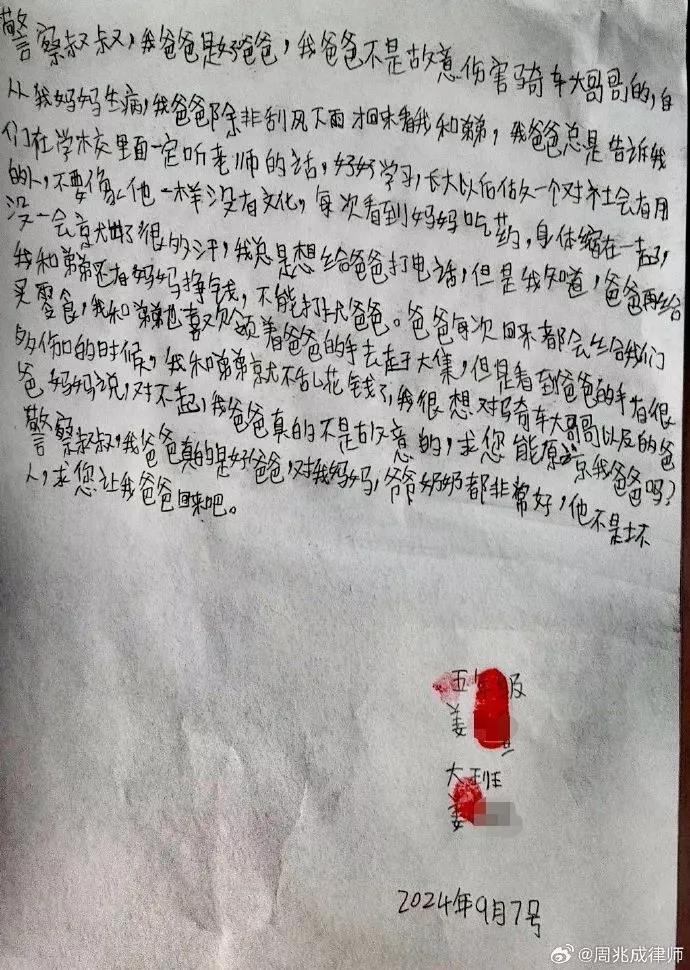 警察叔叔，我爸爸是好爸爸，我爸爸不是故意伤害骑车大哥哥的，自
从我妈妈生病，我爸爸除非刮风下雨才回来看我和弟弟，我爸爸总是告诉我
们在学校里面一定听老师的话，好好学习，长大以后做一个对社会有用
的人，不要像他一样没有文化，每次看到妈妈吃药，身体缩在一起，
没一会京尤出了很多汗，我总是想给爸爸打电话，但是我知道，爸爸再给
我和弟弟还有妈妈挣钱，不能打扰爸爸。爸爸每次回来都会给我们
买零食，我和弟弟也喜欢领着爸爸的手去赶大集，但是看到爸爸的手有很
多伤口的时候，我和弟弟就不乱花钱了，我很想对骑车大哥哥以及的爸
爸妈妈说，对不起，我爸爸真的不是故意的，求您能原谅我爸爸吗？
警察叔叔，我爸爸真的是好爸爸，对我妈妈，爷爷奶奶都非常好，他不是坏
人，求您让我爸爸回来吧。
五年级
姜
大班
姜
2024年9月7号
@周兆成律师